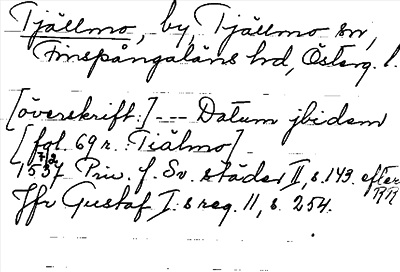 Tjällmo, by, Tjällmo sn,
Finspångaläns hd, Österg. l.
[överskrift:] --- Datum jbidem
[fol. 69 r. Tiälmo]
7/3
1537 Priv. f. Sv. städer II, s. 143. efter
RR
Jfr Gustaf I:s reg. 11, s. 254.